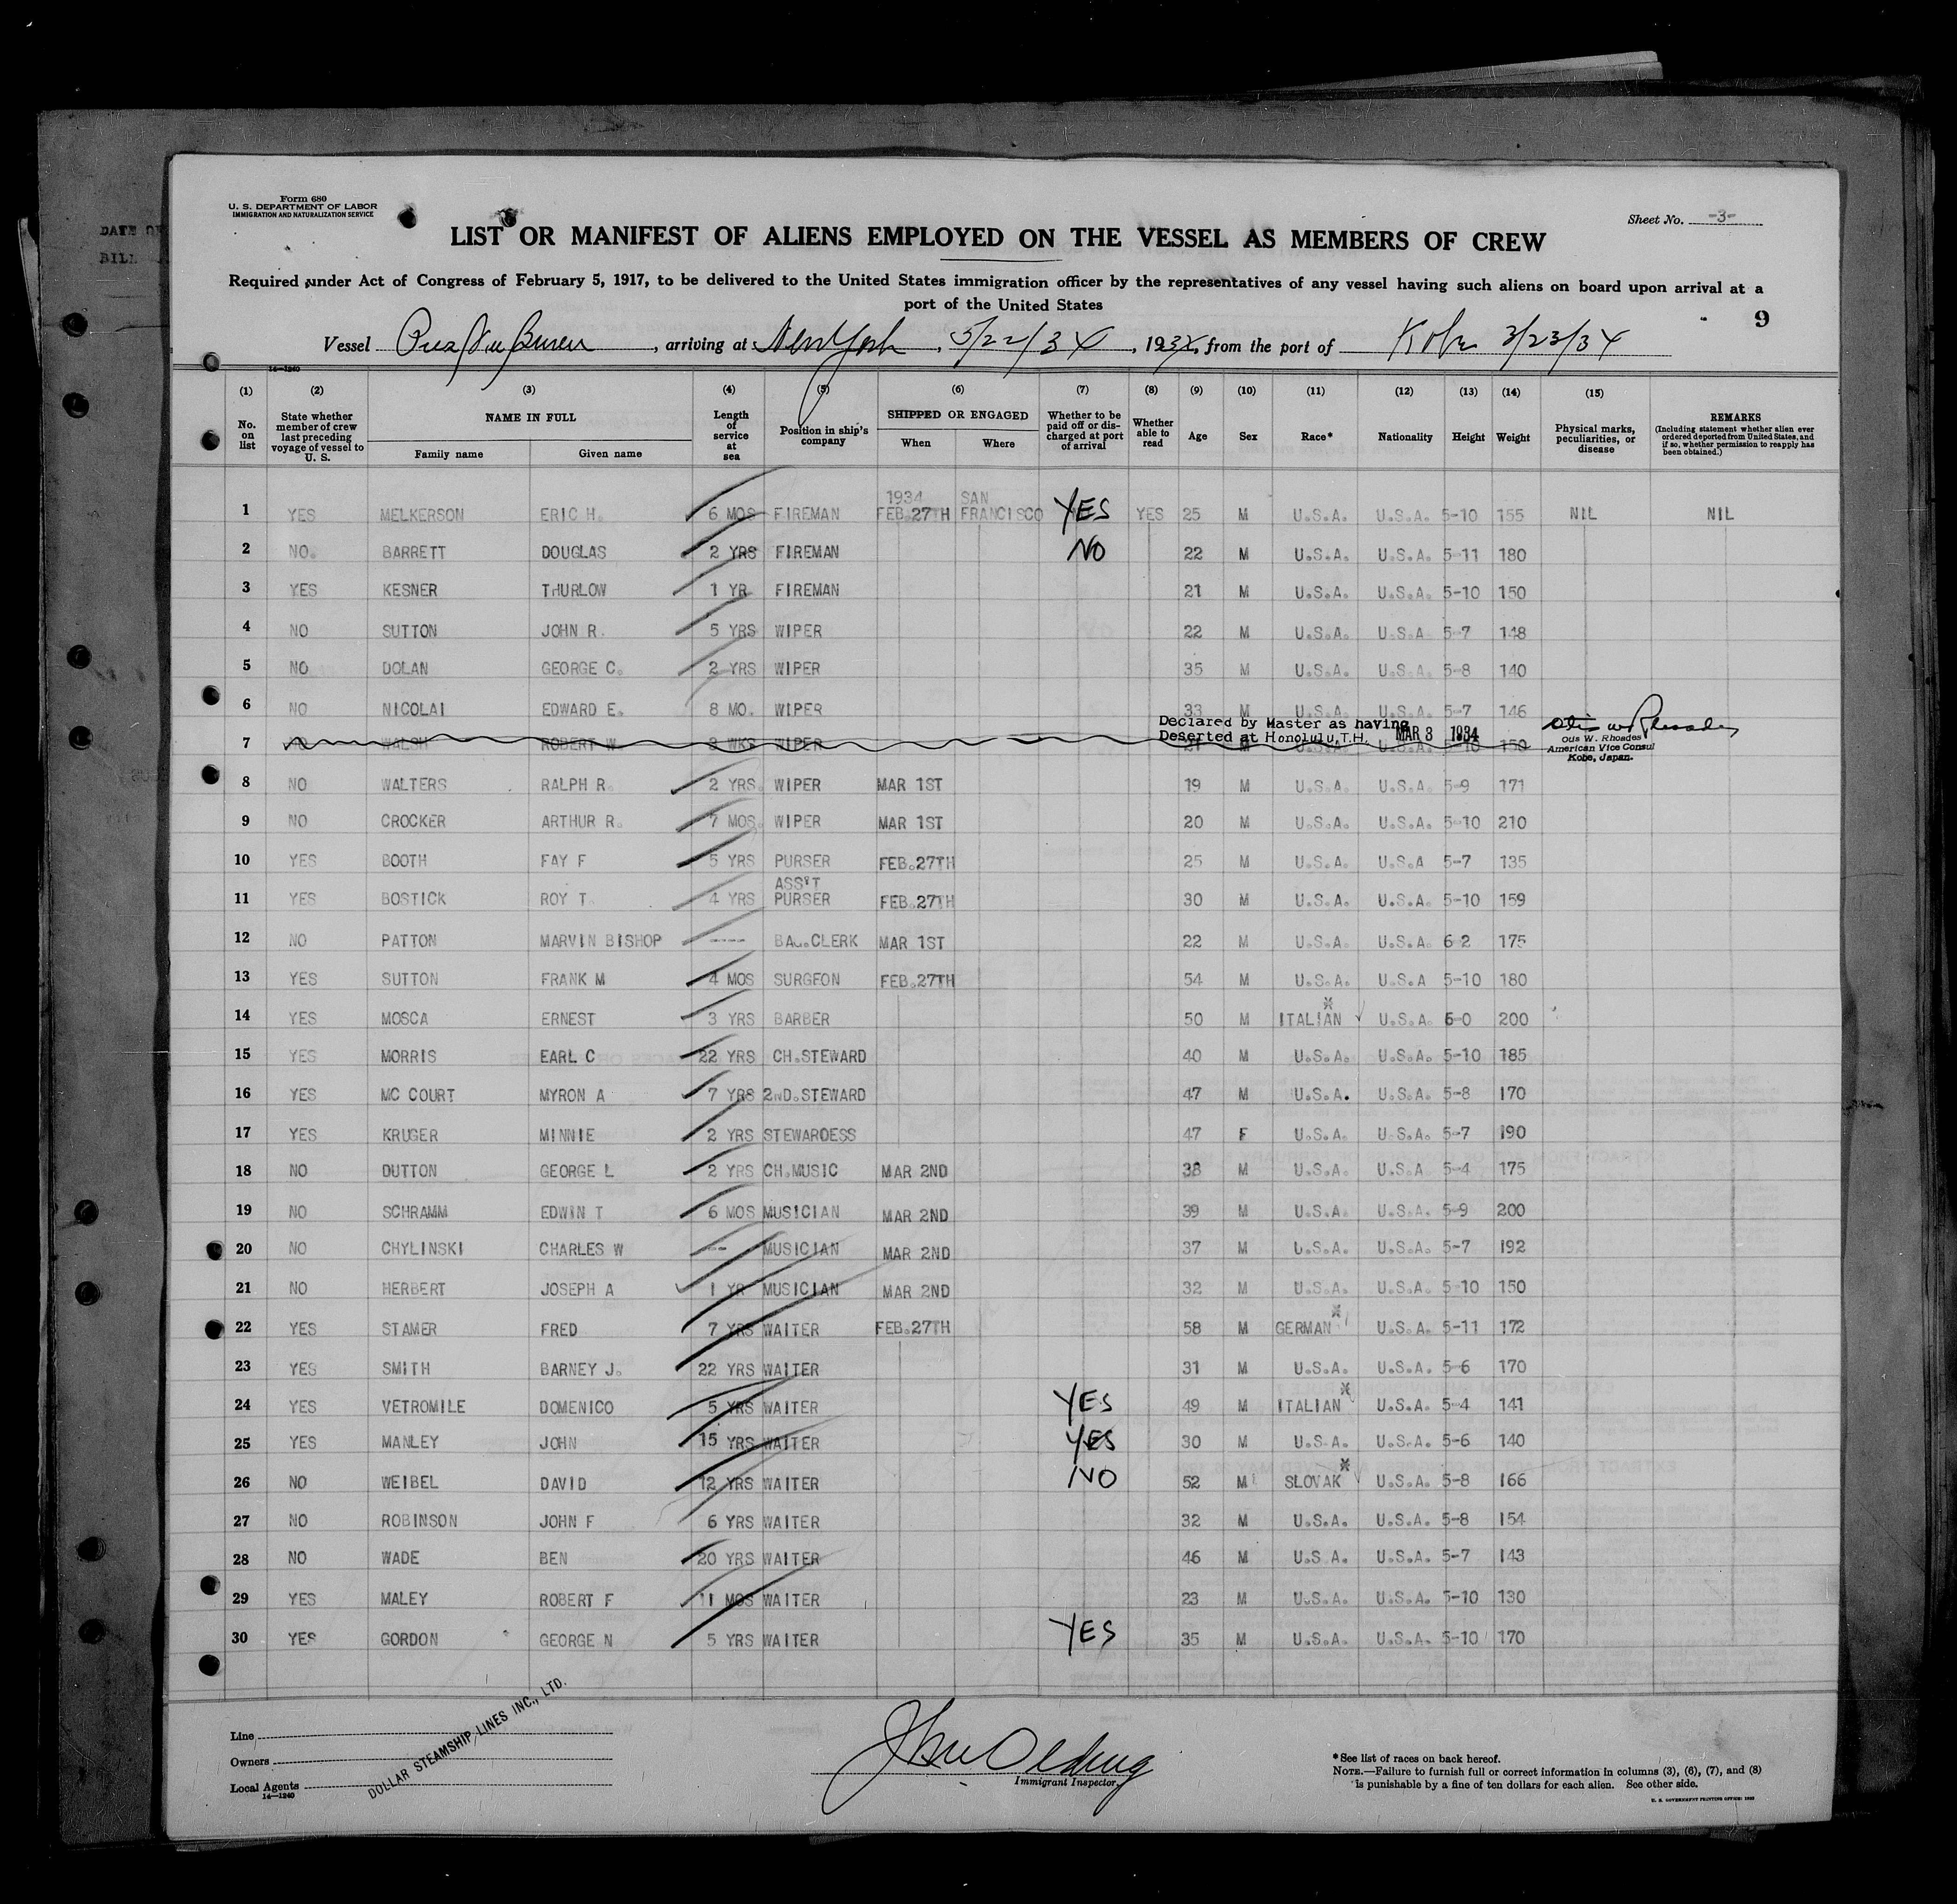 DATE OF
BILL
Form 680
U. S. DEPARTMENT OF LABOR
IMMIGRATION AND NATURALIZATION SERVICE
Sheet No. -3-
LIST OR MANIFEST OF ALIENS EMPLOYED ON THE VESSEL AS MEMBERS OF CREW
Required under Act of Congress of February 5, 1917, to be delivered to the United States immigration officer by the representatives of any vessel having such aliens on board upon arrival at a
port of the United States
9
Vessel Pres Van Buren, arriving at New York, 5/22/34, 1934, from the port of Kobe 3/23/34
14—1240
(1) (2) (3) (4) (5) (6) (7) (8) (9) (10) (11) (12) (13) (14) (15)
No. on list State whether member of crew last preceding voyage of vessel to U. S. NAME IN FULL Family name Given name Length of service at sea Position in ship's company SHIPPED OR ENGAGED When Where Whether to be paid off or discharged at port of arrival Whether able to read Age Sex Race* Nationality Height Weight Physical marks, peculiarities, or disease REMARKS (Including statement whether alien ever ordered deported from United States, and if so, whether permission to reapply has been obtained.)
1 YES MELKERSON ERIC H. 6 MOS FIREMAN 1934 FEB.27TH SAN FRANCISCO YES YES 25 M U.S.A. U.S.A. 5-10 155 NIL NIL
2 NO. BARRETT DOUGLAS 2 YRS FIREMAN NO 22 M U.S.A. U.S.A. 5-11 180
3 YES KESNER THURLOW 1 YR FIREMAN 21 M U.S.A. U.S.A. 5-10 150
4 NO SUTTON JOHN R. 5 YRS WIPER 22 M U.S.A. U.S.A 5-7 148
5 NO DOLAN GEORGE C. 2 YRS WIPER 35 M U.S.A. U.S.A 5-8 140
6 NO NICOLAI EDWARD E. 8 MO. WIPER 33 M U.S.A. U.S.A. 5-7 146
Declared by Master as having
Deserted at Honolulu, T.H. MAR 3 1934
Otis W Rhoades
Otis W. Rhoades
American Vice Consul
Kobe, Japan.
7 WALSH ROBERT W 3 WKS WIPER 21 M U.S.A. U.S.A. 5-10 150
8 NO WALTERS RALPH R. 2 YRS. WIPER MAR 1ST 19 M U.S.A. U.S.A. 5-9 171
9 NO CROCKER ARTHUR R. 7 MOS. WIPER MAR 1ST 20 M U.S.A. U.S.A. 5-10 210
10 YES BOOTH FAY F 5 YRS PURSER FEB.27TH 25 M U.S.A. U.S.A 5-7 135
11 YES BOSTICK ROY T. 4 YRS ASS'T PURSER FEB.27TH 30 M U.S.A. U.S.A 5-10 159
12 NO PATTON MARVIN BISHOP ---- BAG.CLERK MAR 1ST 22 M U.S.A. U.S.A. 6-2 175
13 YES SUTTON FRANK M 4 MOS SURGEON FEB.27TH 54 M U.S.A. U.S.A 5-10 180
14 YES MOSCA ERNEST 3 YRS BARBER 50 M ITALIAN U.S.A. 6-0 200
15 YES MORRIS EARL C 22 YRS CH.STEWARD 40 M U.S.A. U.S.A. 5-10 185
16 YES MC COURT MYRON A 7 YRS 2ND.STEWARD 47 M U.S.A. U.S.A. 5-8 170
17 YES KRUGER MINNIE 2 YRS STEWARDESS 47 F U.S.A. U.S.A. 5-7 190
18 NO DUTTON GEORGE L 2 YRS CH.MUSIC MAR 2ND 38 M U.S.A. U.S.A 5-4 175
19 NO SCHRAMM EDWIN T 6 MOS MUSICIAN MAR 2ND 39 M U.S.A. U.S.A. 5-9 200
20 NO CHYLINSKI CHARLES W -- MUSICIAN MAR 2ND 37 M U.S.A. U.S.A. 5-7 192
21 NO HERBERT JOSEPH A 1 YR MUSICIAN MAR 2ND 32 M U.S.A. U.S.A. 5-10 150
22 YES STAMER FRED 7 YRS WAITER FEB.27TH 58 M GERMAN U.S.A. 5-11 172
23 YES SMITH BARNEY J. 22 YRS WAITER 31 M U.S.A. U.S.A. 5-6 170
24 YES VETROMILE DOMENICO 5 YRS WAITER YES 49 M ITALIAN U.S.A. 5-4 141
25 YES MANLEY JOHN 15 YRS WAITER YES 30 M U.S.A. U.S.A. 5-6 140
26 NO WEIBEL DAVID 12 YRS WAITER NO 52 M SLOVAK U.S.A. 5-8 166
27 NO ROBINSON JOHN F 6 YRS WAITER 32 M U.S.A. U.S.A. 5-8 154
28 NO WADE BEN 20 YRS WAITER 46 M U.S.A. U.S.A. 5-7 143
29 YES MALEY ROBERT F 11 MOS WAITER 23 M U.S.A. U.S.A. 5-10 130
30 YES GORDON GEORGE N 5 YRS WAITER YES 35 M U.S.A. U.S.A. 5-10 170
Line
Owners
Local Agents
14—1240
DOLLAR STEAMSHIP LINES INC., LTD.
Immigrant Inspector.
*See list of races on back hereof.
NOTE.—Failure to furnish full or correct information in columns (3), (6), (7), and (8)
is punishable by a fine of ten dollars for each alien. See other side.
U. S. GOVERNMENT PRINTING OFFICE: 1933